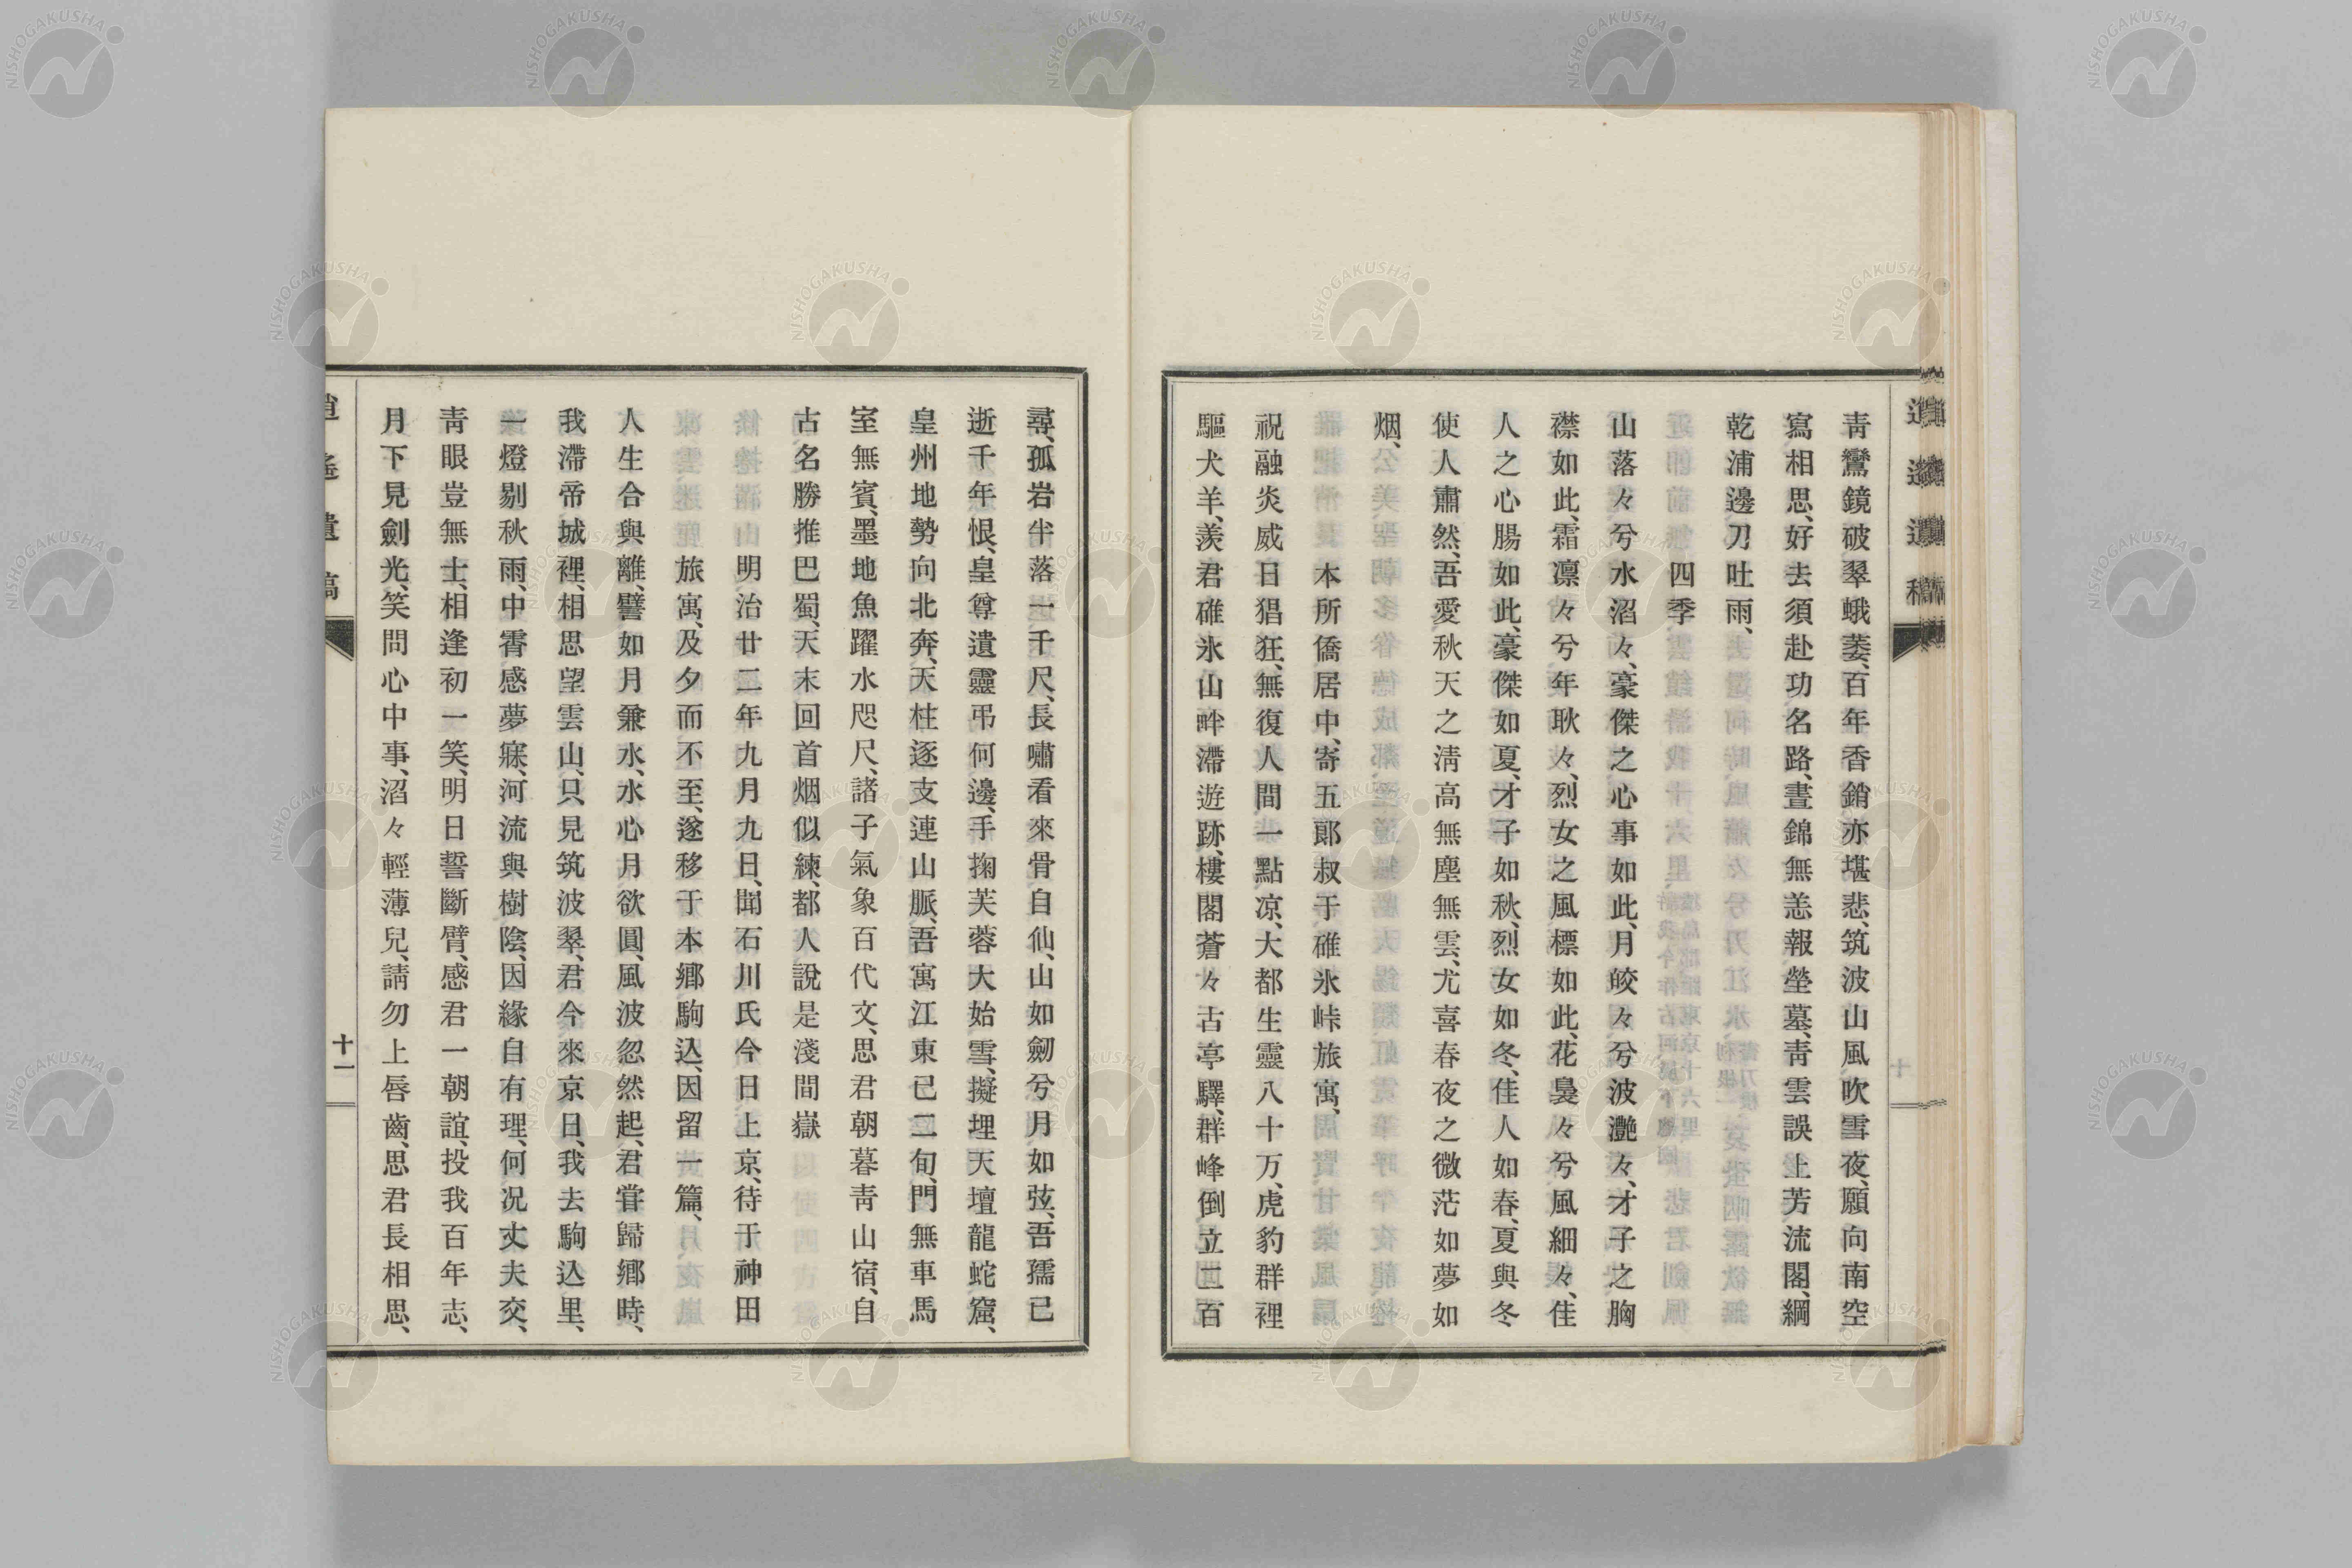 青鸞鏡破翠蛾萎、百年香銷亦堪悲、筑波山風吹雪夜、願向南空
寫相思、好去須赴功名路、晝錦無恙報塋墓、靑雲誤上芳流閣、綱
乾浦邊刀吐雨、
四季
山落々兮水滔々、豪傑之心事如此、月皎々兮波灔々、才子之胸
襟如此、霜凛々兮年耿々、烈女之風標如此、花裊々兮風細々、佳
人之心腸如此、豪傑如夏、才子如秋、烈女如冬、佳人如春、夏與冬
使人肅然、吾愛秋天之淸高無塵無雲、尤喜春夜之微茫如夢如
烟、
本所僑居中、寄五郞叔于碓氷峠旅寓、
祝融炎威日猖狂、無復人間一點凉、大都生靈八十万、虎豹群裡
驅犬羊、羨君碓氷山畔滯遊跡、樓閣蒼々古亭驛、群峰倒立二百
逍遙遺稿
尋、孤岩半落一千尺、長嘯看來骨自仙、山如劒兮月如弦、吾孺已
逝千年恨、皇尊遺靈弔何邊、手掬芙蓉大始雪、擬埋天壇龍蛇窟、
皇州地勢向北奔、天柱逐支連山脈、吾寓江東已二旬、門無車馬
室無賓、墨地魚躍水咫尺、諸子氣象百代文、思君朝暮靑山宿、自
古名勝推巴蜀、天末回首烟似練、都人說是淺間嶽
明治廿二年九月九日、聞石川氏今日上京、待于神田
旅寓、及夕而不至、遂移于本鄕駒込、因留一篇、
人生合與離、譬如月兼水、水心月欲圓、風波忽然起、君甞歸鄕時、
我滯帝城裡、相思望雲山、只見筑波翠、君今來京日、我去駒込里、
一燈剔秋雨、中宵感夢寐、河流與樹陰、因緣自有理、何況丈夫交、
靑眼豈無士、相逢初一笑、明日誓斷臂、感君一朝誼、投我百年志、
月下見劍光、笑問心中事、滔々輕薄兒、請勿上唇齒、思君長相思、
逍遙遺稿
十一